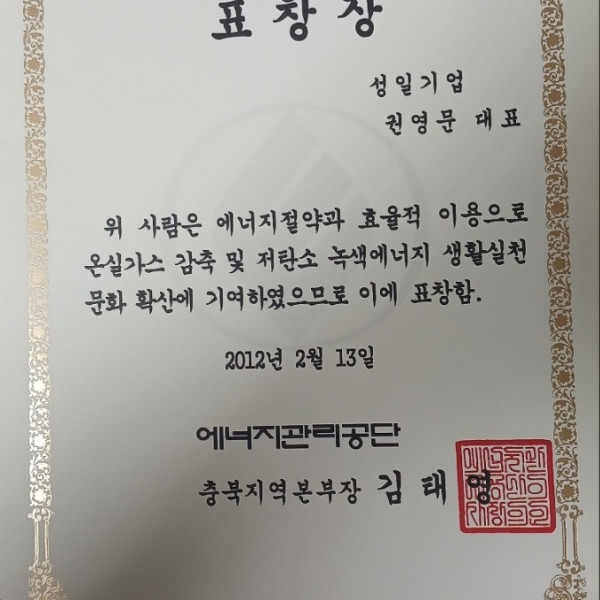 표창장
성일기업
권영문 대표
위 사람은 에너지절약과 효율적 이용으로
온실가스 감축 및 저탄소 녹색에너지 생활실천
문화 확산에 기여하였으므로 이에 표창함.
2012년 2월 13일
에너지관리공단
충북지역본부장 김태영